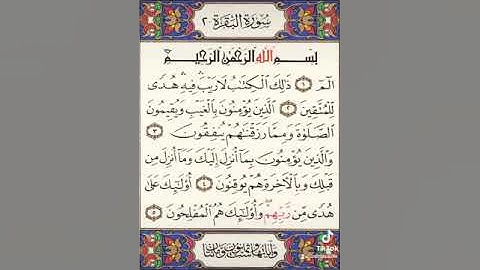 سُورَةُ البَقَرَة ٢
بِسْمِ اللَّهِ الرَّحْمَٰنِ الرَّحِيمِ
الٓمٓ ۝١ ذَٰلِكَ الْكِتَابُ لَا رَيْبَ ۛ فِيهِ ۛ هُدًى
لِّلْمُتَّقِينَ ۝٢ الَّذِينَ يُؤْمِنُونَ بِالْغَيْبِ وَيُقِيمُونَ
الصَّلَوٰةَ وَمِمَّا رَزَقْنَٰهُمْ يُنفِقُونَ ۝٣
وَالَّذِينَ يُؤْمِنُونَ بِمَا أُنزِلَ إِلَيْكَ وَمَا أُنزِلَ مِن
قَبْلِكَ وَبِالْآخِرَةِ هُمْ يُوقِنُونَ ۝٤ أُولَٰئِكَ عَلَىٰ
هُدًى مِّن رَّبِّهِمْ ۖ وَأُولَٰئِكَ هُمُ الْمُفْلِحُونَ ۝٥
TikTok